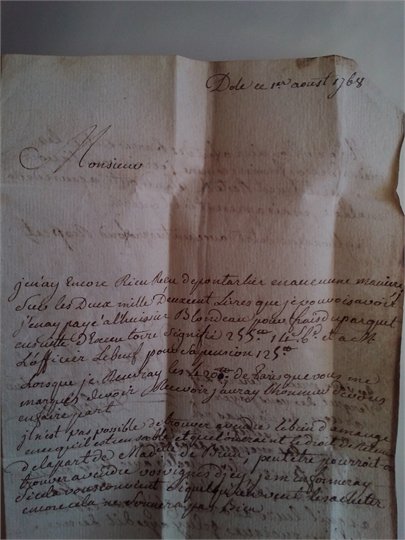 Dole ce 1er aoust 1768
Monsieur
je n'ay Encore Rien Reçu de pontarlier en aucune maniere
Sur les Deux mille Deux cent Livres que je pouvois avoir
j'en ay payé a l'huissier Blondeau pour frais du parquet
ensuitte D'Executoire Signifié 255# 14s 6d et a M
L'officier Lebeuf pour Sa pension 125#
Lorsque je Recevray les 400# de Paris que vous me
marqués devoir Recevoir j'auray l'honneur de vous
en faire part
il n'est pas possible de trouver a vendre le bien
en ce qu'il est et que le droit de
de la part de Madelle de peutetre pourroit on
trouver a vendre vos vignes d'icy, je m'en informeray
Si cela vous convient Si quelqu'un veut les acheter
encore cela ne Sera pas bien